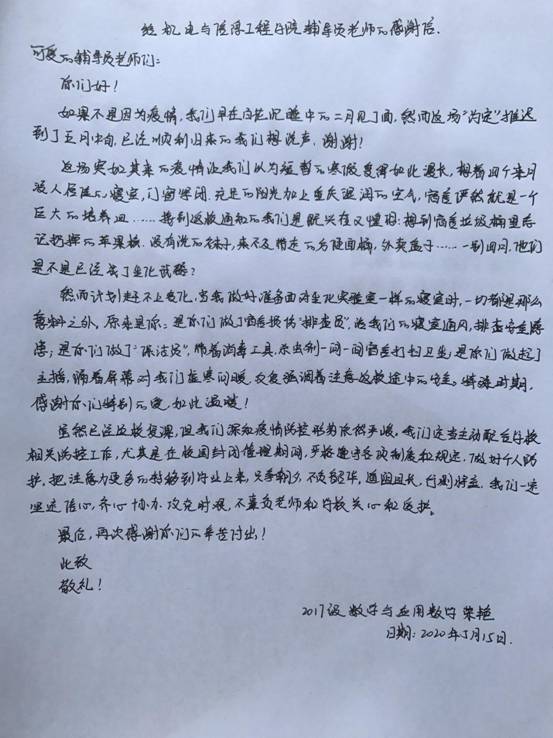 给机电与信息工程学院辅导员老师的感谢信.
可爱的辅导员老师们:
你们好!
如果不是因为疫情,我们早在白茫茫雾中的二月见了面.然而这场"约定"推迟
到了五月中旬,已经顺利归来的我们想说声.谢谢!
这场突如其来的疫情让我们以为短暂的寒假变得如此漫长,想着四个来月
没人居住的寝室,门窗紧闭.充足的阳光加上重庆湿润的空气,宿舍俨然就是一个
巨大的培养皿……接到返校通知的我们是既兴奋又惶恐:想到宿舍垃圾桶里忘
记扔掉的苹果核.没有洗的袜子,来不及带走的方便面桶,外卖盒子……一别四月,他们
是不是已经成了生化武器?
然而计划赶不上变化,当我做好准备面对生化实验室一样的寝室时,一切都是那么
意料之外,原来是你:是你们做了宿舍损伤"排查员",为我们的寝室通风,排查安全隐
患;是你们做了"保洁员",带着消毒工具.杀虫剂一间一间宿舍打扫卫生;是你们做起了
主播,隔着屏幕对我们嘘寒问暖,反复强调着注意返校途中的安全.特殊时期,
感谢你们特别的爱,如此温暖!
虽然已经返校复课,但我们深知疫情防控形势依然严峻,我们应当主动配合学校
相关防控工作,尤其是在校园封闭管理期间,严格遵守各项制度和规定.做好个人防
护,把注意力更多的转移到学业上来,只争朝夕,不负韶华,道阻且长,行则将至.我们一定
坚定信心,齐心协力.攻克时艰,不辜负老师和学校关心和爱护。
最后,再次感谢你们的辛苦付出!
此致
敬礼!
2017级数学与应用数学 荣艳
日期:2020年5月15日.